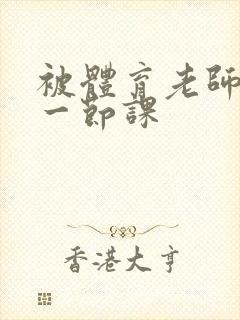 被體育老師
一節課
香港大亨